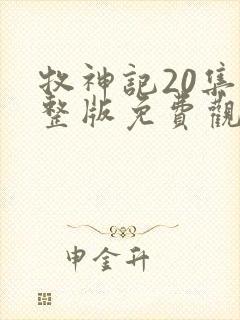 牧神記20集
整版免費觀
申金升